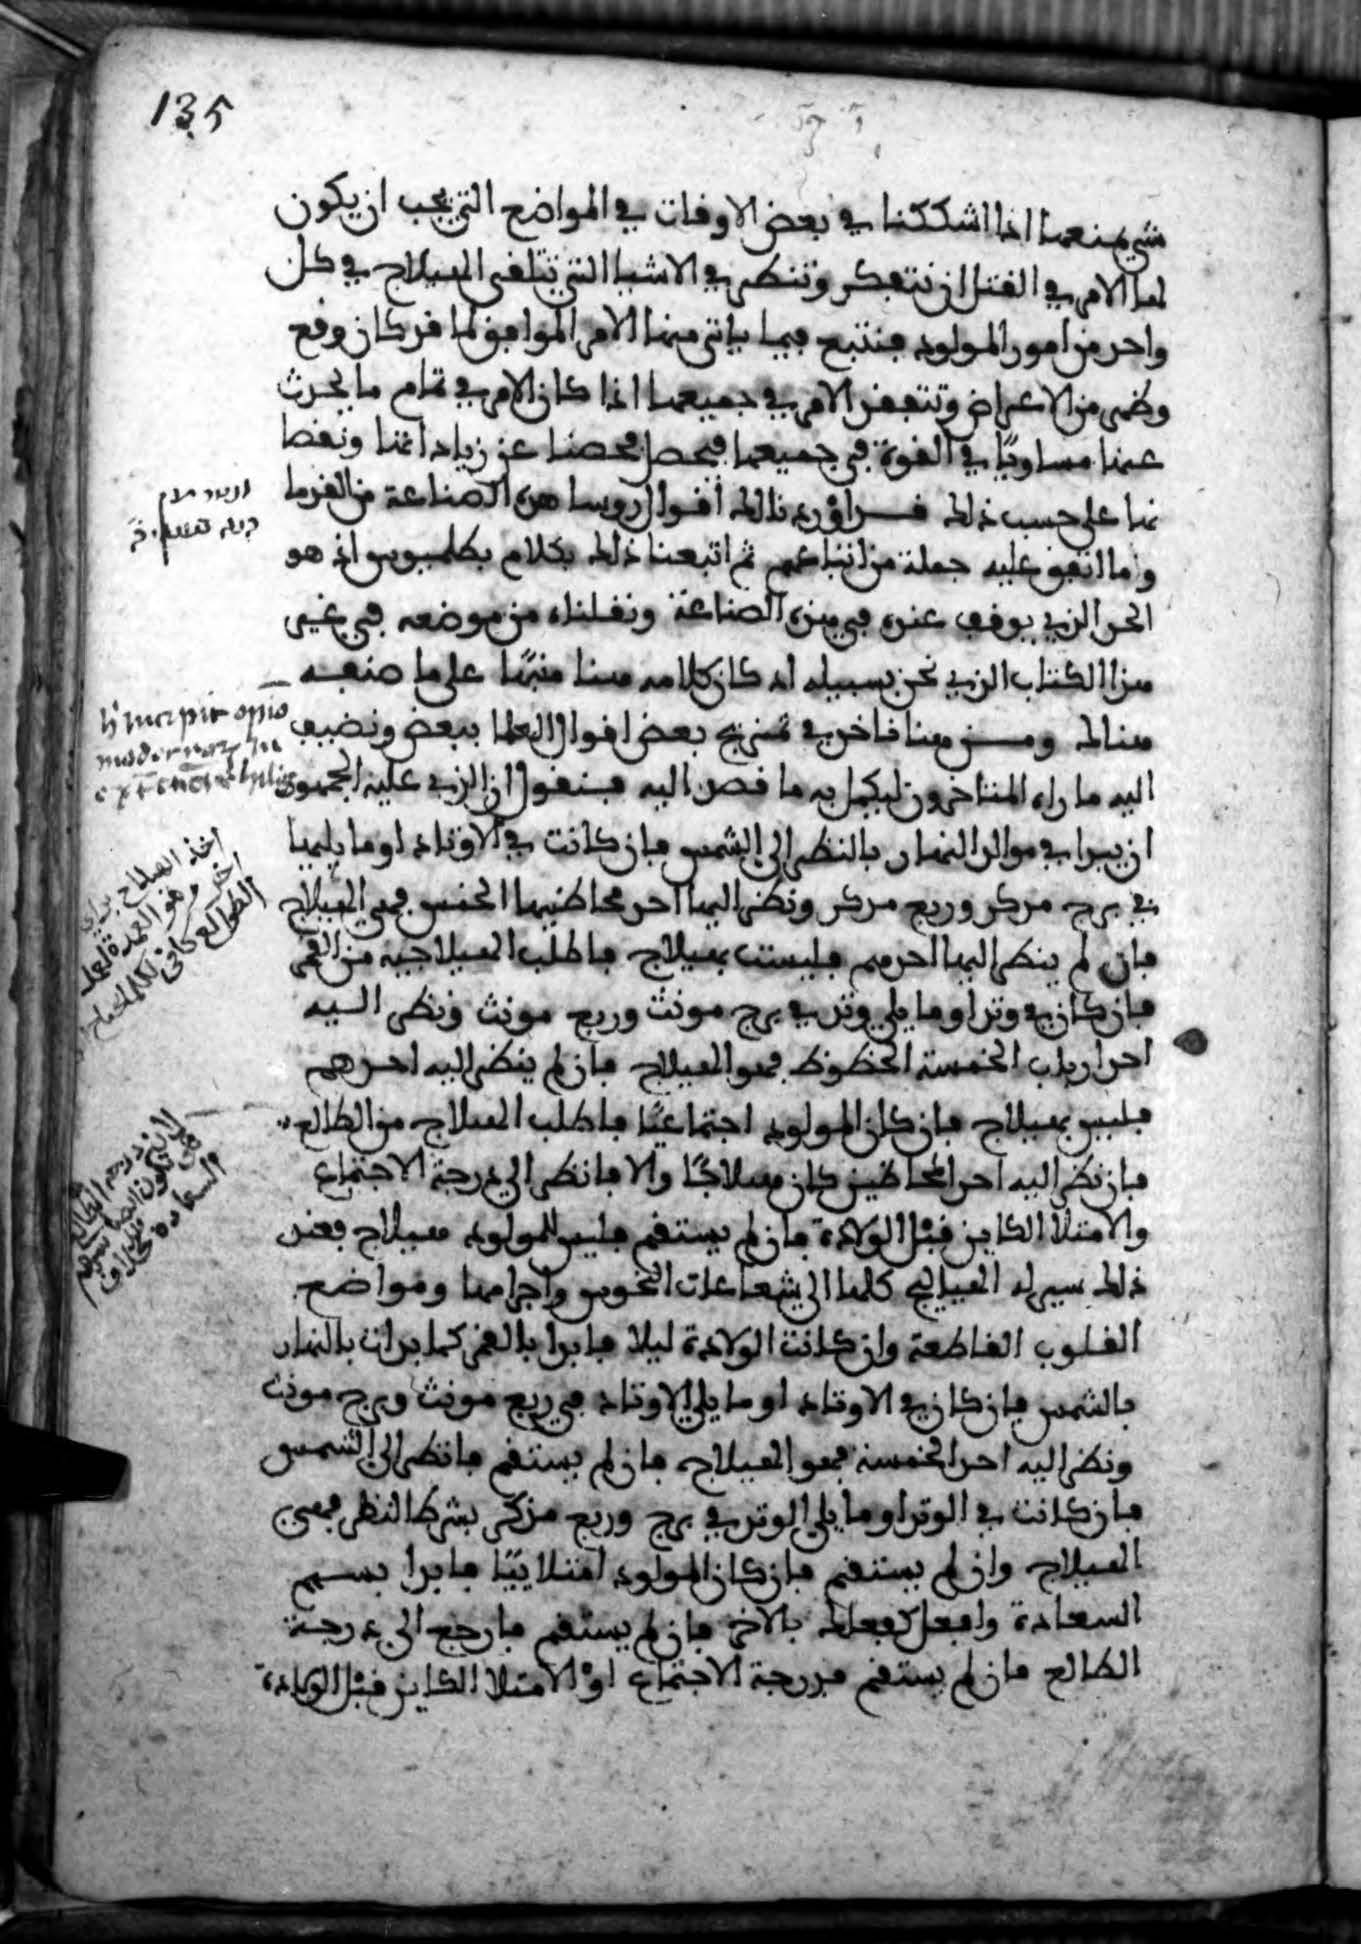 135
شي يمنعها اذا اشككنا في بعض الاوقات في المواضع التي يجب ان يكون
لها الامر في القتل ان نتفكر وننظر في الاشيا التي تتلقى الهيلاج في كل
واحد من امور المولود فنتبع فيما ياتي منها الامر الموافق لما قد كان وقع
وظهر من الاعراض ونتفقد الامر في جميعها اذا كان الامر في تمام ما يحدث
عنها مساويًا في القوة في جميعها فيحصل فحصنا عن زياداتها ونقصا
نها على حسب ذلك قد اوردنا لك اقوال روسا هذه الصناعة من القدما
وما اتفق عليه جملة من اتباعهم ثم اتبعنا ذلك بكلام بطلميوس اذ هو
الحد الذي يوقف عنده في هذه الصناعة ونقلناه من موضعه في غير
هذا الكتاب الذي نحن بسبيله اذ كان كلامه هنا منبهًا على ما صنعه
هنالك ومن هنا ناخذ في تمزيج بعض اقوال العلما ببعض ونضيف
اليه ما راه المتاخرون ليكمل به ما قصد اليه فنقول ان الذي عليه الجمهور
ان يبدا في مواليد النهار بالنظر الى الشمس فان كانت في الاوتاد او ما يليها
في برج مذكر وربع مذكر ونظر اليها احد محاظيها الخمس فهي الهيلاج
فان لم ينظر اليها احدهم فليست بهيلاج فاطلب الهيلاجية من القمر
فان كان في وتد او ما يلي وتد في برج مونث وربع مونث ونظر اليه
احد ارباب الخمسة الحظوظ فهو الهيلاج فان لم ينظر اليه احدهم
فليس بهيلاج فان كان المولود اجتماعيًا فاطلب الهيلاج من الطالع
فان نظر اليه احد المحاظين كان هيلاجًا والا فانظر الى درجة الاجتماع
والامتلا الكاين قبل الولادة فان لم يستقم فليس للمولود هيلاج فعند
ذلك سير له الهياليج كلها الى شعاعات النحوس واجرامها ومواضع
القلوب القاطعة وان كانت الولادة ليلا فابدا بالقمر كما بدات بالنهار
بالشمس فان كان في الاوتاد او ما يلي الاوتاد في ربع مونث وبرج مونث
ونظر اليه احد الخمسة فهو الهيلاج فان لم يستقم فانظر الى الشمس
فان كانت في الوتد او ما يلي الوتد في برج وربع مذكر بشرط النظر فهي
الهيلاج وان لم يستقم فان كان المولود امتلاييًا فابدا بسهم
السعادة وافعل كفعلك بالاخر فان لم يستقم فارجع الى درجة
الطالع فان لم يستقم فدرجة الاجتماع او الامتلا الكاين قبل الولادة
h' incipit opio
modernorum in
اخذ
اخر وهو العمدة
الطوالع
درجة الطالع
تكون
السعادة بخلاف